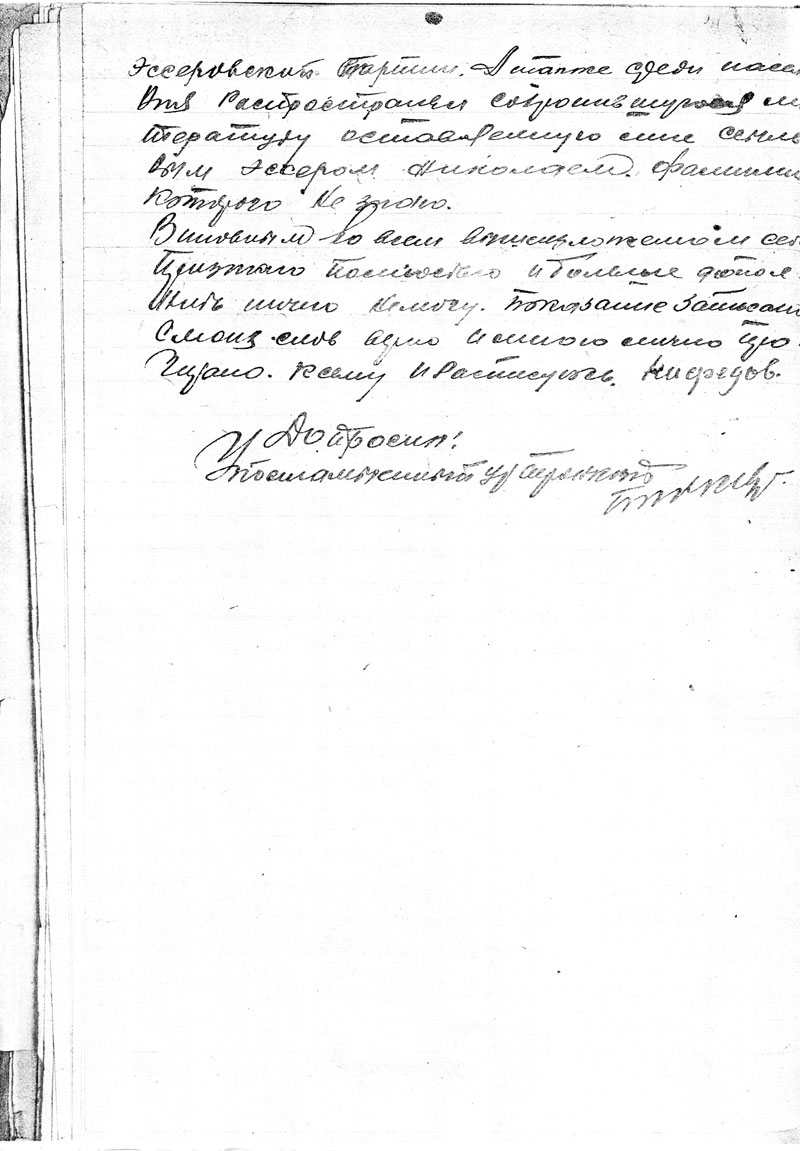 эссеровской партии. А также среди насе
ния распространял сохранившуюся ли
тературу оставленную мне ссыль
ным эссером Николаем. фамилии
которого не знаю.
Виновным во всем вышеизложенном себ
признаю полностью и больше допол-
нить ничего не могу. показание записано
с моих слов верно и мною лично про-
читано. к сему и расписуюсь.
Допросил: